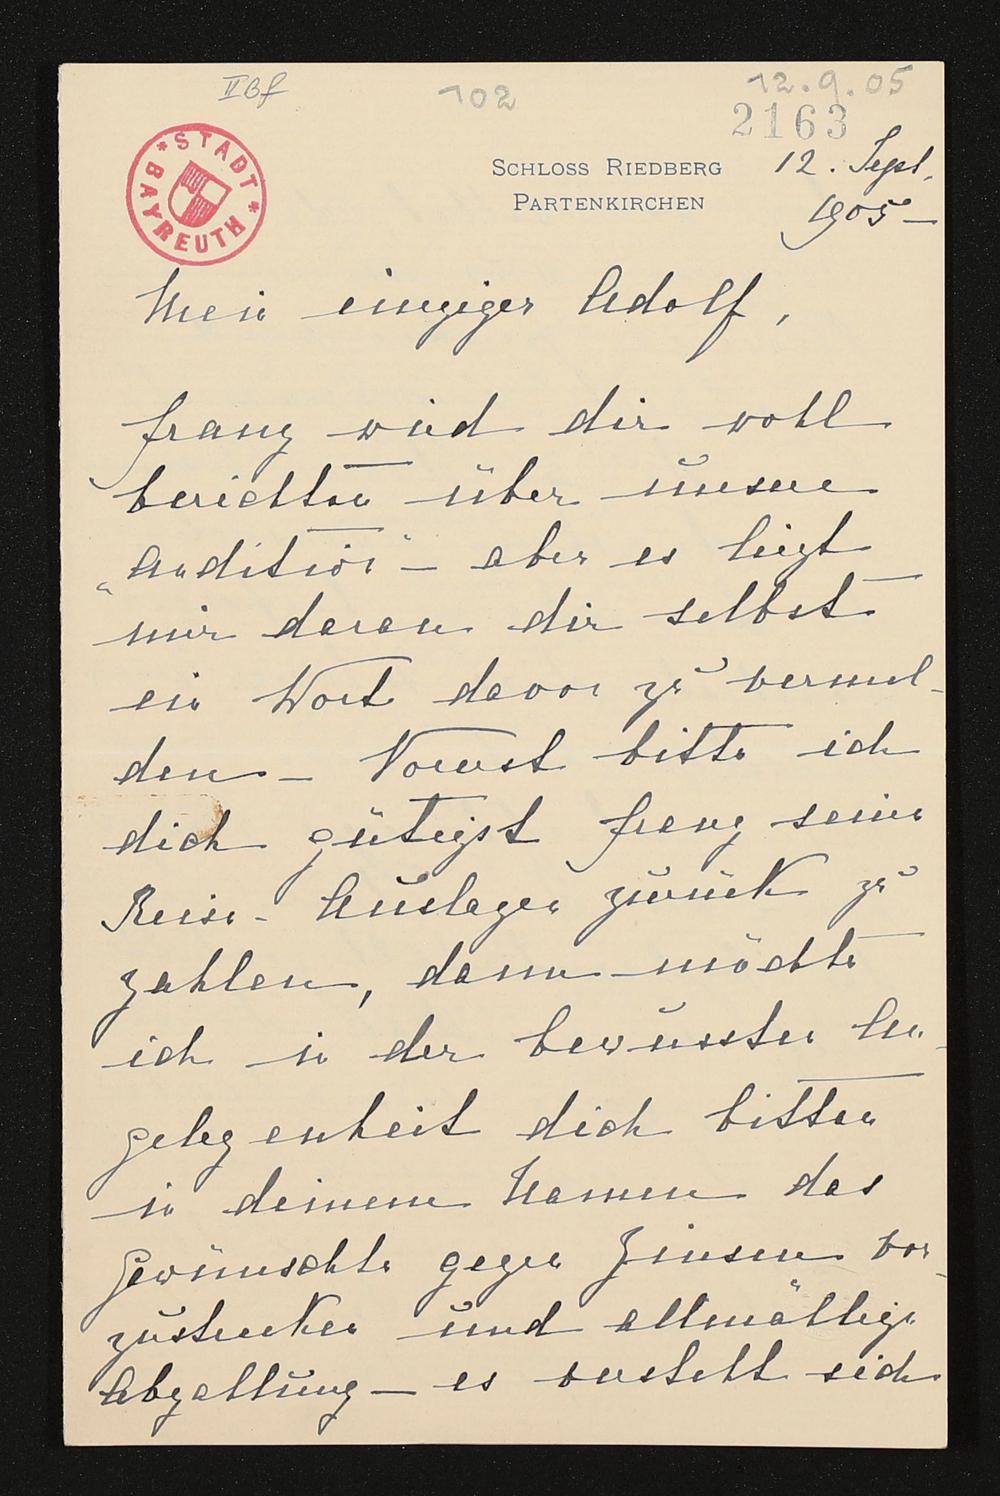 II Bf
102
12.9.05
2163
STADT BAYREUTH
SCHLOSS RIEDBERG
PARTENKIRCHEN
12. Sept.
1905 –
Mein einziger Adolf,
Franz wird dir wohl
berichten über unsere
„Audition" – aber es liegt
mir daran dir selbst
ein Wort davon zu vermel-
den – Vorerst bitte ich
dich gütigst Franz seine
Reise-Auslagen zurück zu
zahlen, dann möchte
ich in der bewussten An-
gelegenheit dich bitten
in deinem Namen das
Gewünschte gegen Zinsen vor-
zustrecken und allmälige
Abzahlung – es versteht sich